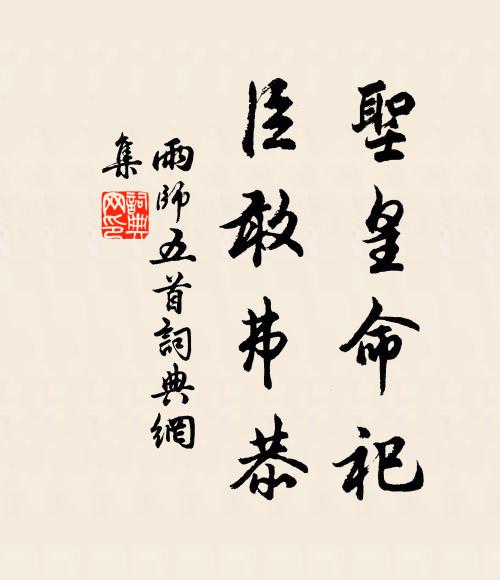 聖皇命祀
臣敢弗恭
雨師五首詞典網
集
詞典
网印